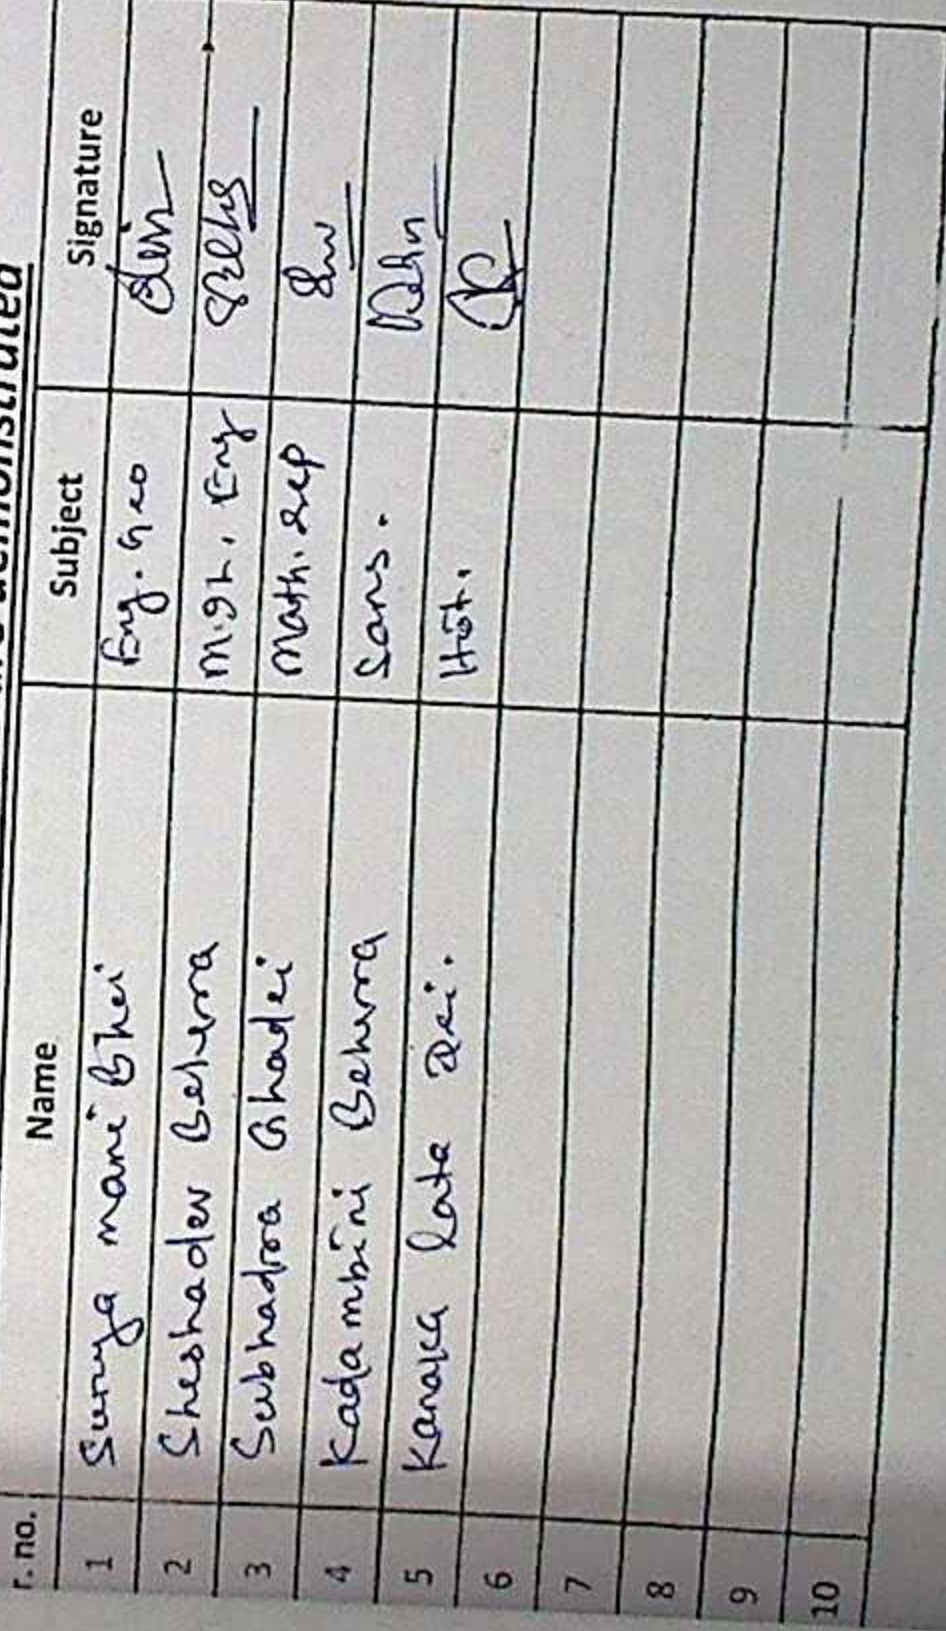 demonstrated
r. no. Name Subject Signature
1 Surya mani Bhei Eng. Geo
2 Sheshadev Behera M.I.L. Eng
3 Subhadra Ghadei Math. Scp
4 Kadambini Behera Sans.
5 Kanaka Lata Dei. Hist.
6
7
8
9
10